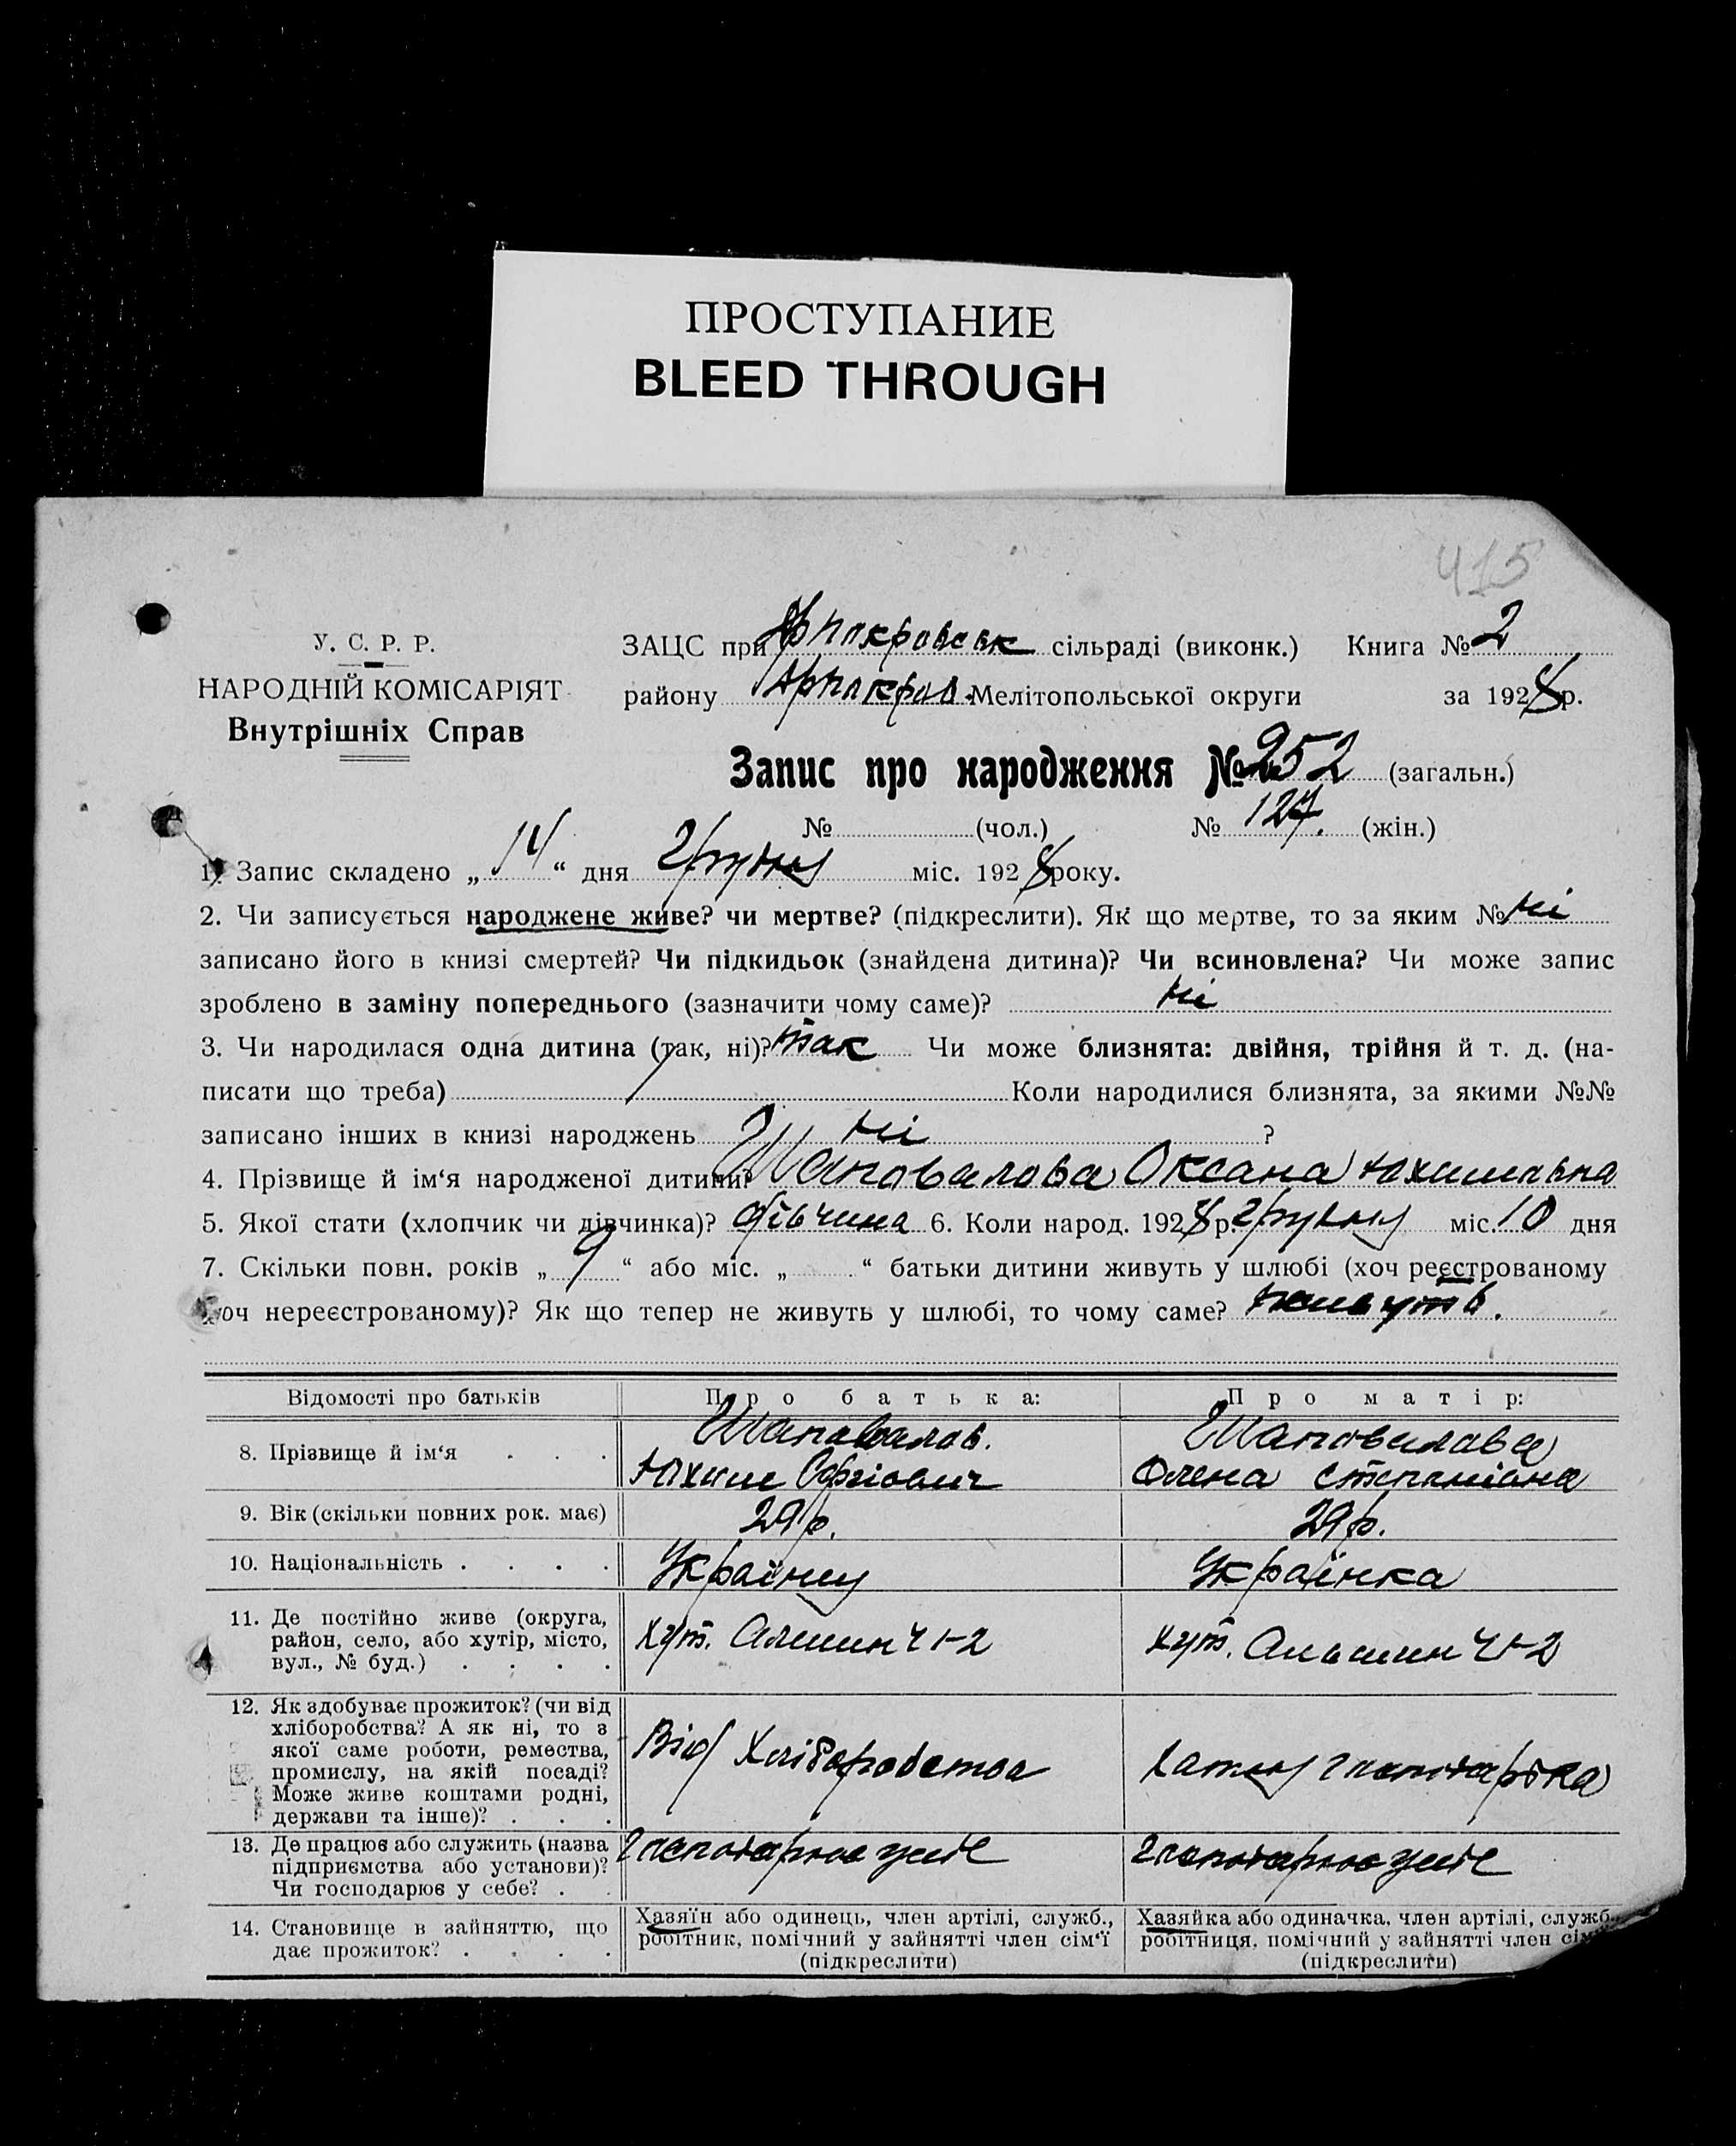 ПРОСТУПАНИЕ
BLEED THROUGH
415
У. С. Р. Р.
НАРОДНІЙ КОМІСАРІЯТ
Внутрішніх Справ
ЗАЦС при сільраді (виконк.) Книга № 2
району Мелітопольської округи за 1928 р.
Запис про народження № 252 (загальн.)
№ (чол.) № 127. (жін.)
1) Запис складено „ 14 “ дня грудня міс. 1928 року.
2. Чи записується народжене живе? чи мертве? (підкреслити). Як що мертве, то за яким № ні
записано його в книзі смертей? Чи підкидьок (знайдена дитина)? Чи всиновлена? Чи може запис
зроблено в заміну попереднього (зазначити чому саме)? ні
3. Чи народилася одна дитина (так, ні)? так Чи може близнята: двійня, трійня й т. д. (на-
писати що треба) Коли народилися близнята, за якими №№
записано інших в книзі народжень ні ?
4. Прізвище й ім‘я народженої дитини? Шаповалова Оксана Юхимівна
5. Якої стати (хлопчик чи дівчинка)? дівчина 6. Коли народ. 1928 р. грудня міс. 10 дня
7. Скільки повн. років „ 9 “ або міс. „ “ батьки дитини живуть у шлюбі (хоч реєстрованому
хоч нереєстрованому)? Як що тепер не живуть у шлюбі, то чому саме? живуть.
Відомості про батьків Про батька: Про матір:
8. Прізвище й ім‘я . . . Шаповалов. Шаповалова
Юхим Олена Степанівна
9. Вік (скільки повних рок. має) 29 р. 29 р.
10. Національність . . . . Українец Українка
11. Де постійно живе (округа,
район, село, або хутір, місто,
вул., № буд.) . . . .
хут. ч 1-2 хут. ч 1-2
12. Як здобуває прожиток? (чи від
хліборобства? А як ні, то з
якої саме роботи, ремества,
промислу, на якій посаді?
Може живе коштами родні,
держави та інше)? . . .
Від Хліборобства
13. Де працює або служить (назва
підприємства або установи)?
Чи господарює у себе? . .
14. Становище в зайняттю, що
дає прожиток? . . . .
Хазяїн або одинець, член артілі, служб.,
робітник, помічний у зайнятті член сім‘ї
(підкреслити)
Хазяйка або одиначка, член артілі, служб.,
робітниця, помічний у зайнятті член
(підкреслити)